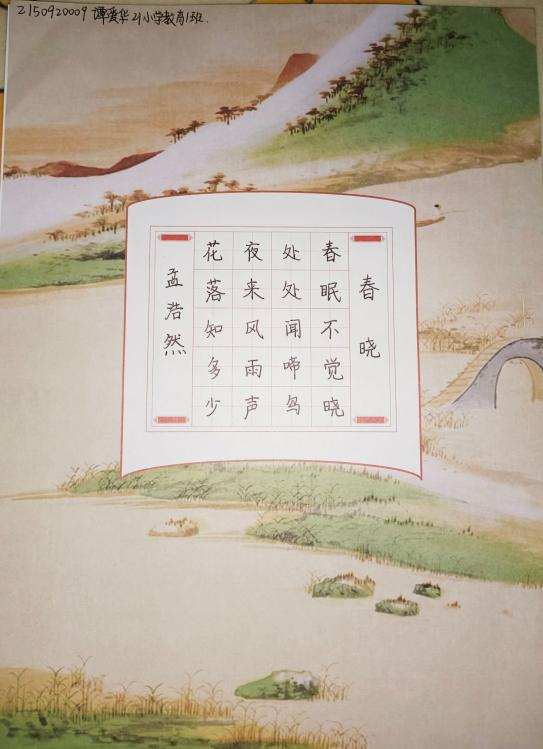 2150920009 谭爱华 21小学教育1班.
春晓
春眠不觉晓
处处闻啼鸟
夜来风雨声
花落知多少
孟浩然